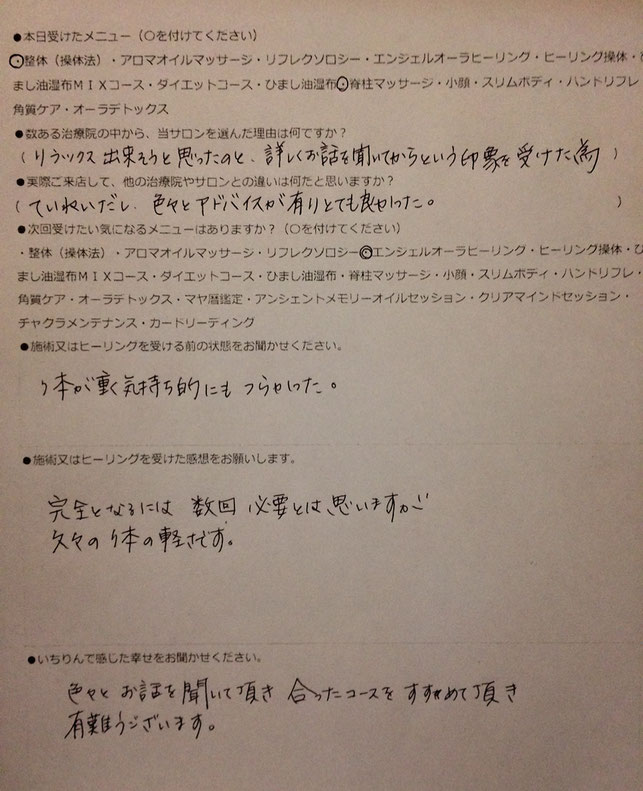 ●本日受けたメニュー(○を付けてください)
・整体(操体法)・アロマオイルマッサージ・リフレクソロジー・エンジェルオーラヒーリング・ヒーリング操体・ひ
まし油湿布MIXコース・ダイエットコース・ひまし油湿布・脊柱マッサージ・小顔・スリムボディ・ハンドリフレ・
角質ケア・オーラデトックス
●数ある治療院の中から、当サロンを選んだ理由は何ですか?
(リラックス出来そうと思ったのと、詳しくお話を聞いてからという印象を受けた為)
●実際ご来店して、他の治療院やサロンとの違いは何だと思いますか?
(ていねいだし、色々とアドバイスが有りとても良かった。)
●次回受けたい気になるメニューはありますか?(○を付けてください)
・整体(操体法)・アロマオイルマッサージ・リフレクソロジー・エンジェルオーラヒーリング・ヒーリング操体・ひ
まし油湿布MIXコース・ダイエットコース・ひまし油湿布・脊柱マッサージ・小顔・スリムボディ・ハンドリフレ・
角質ケア・オーラデトックス・マヤ暦鑑定・アンシェントメモリーオイルセッション・クリアマインドセッション・
チャクラメンテナンス・カードリーディング
●施術又はヒーリングを受ける前の状態をお聞かせください。
体が重く気持ち的にもつらかった。
●施術又はヒーリングを受けた感想をお願いします。
完全となるには 数回 必要とは思いますが
久々の体の軽さです。
●いちりんで感じた幸せをお聞かせください。
色々と お話を聞いて頂き 合ったコースを すすめて頂き
有難うございます。